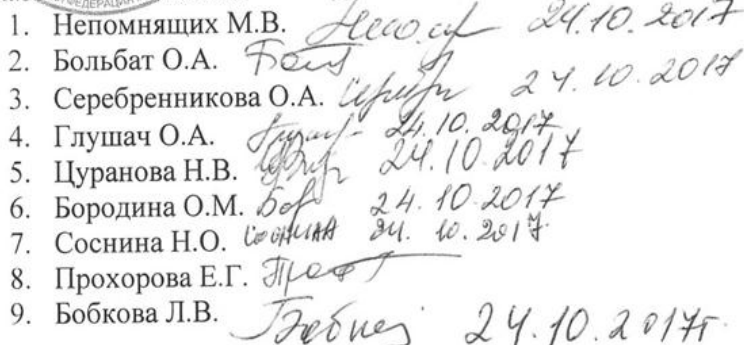 ФЕДЕРАЦИ
1. Непомнящих М.В. 24.10.2017
2. Больбат О.А.
3. Серебренникова О.А. 24.10.2017
4. Глушач О.А. 24.10.2017
5. Цуранова Н.В. 24.10.2017
6. Бородина О.М. Бор 24.10.2017
7. Соснина Н.О. Соснина 24.10.2017.
8. Прохорова Е.Г.
9. Бобкова Л.В. 24.10.2017г.